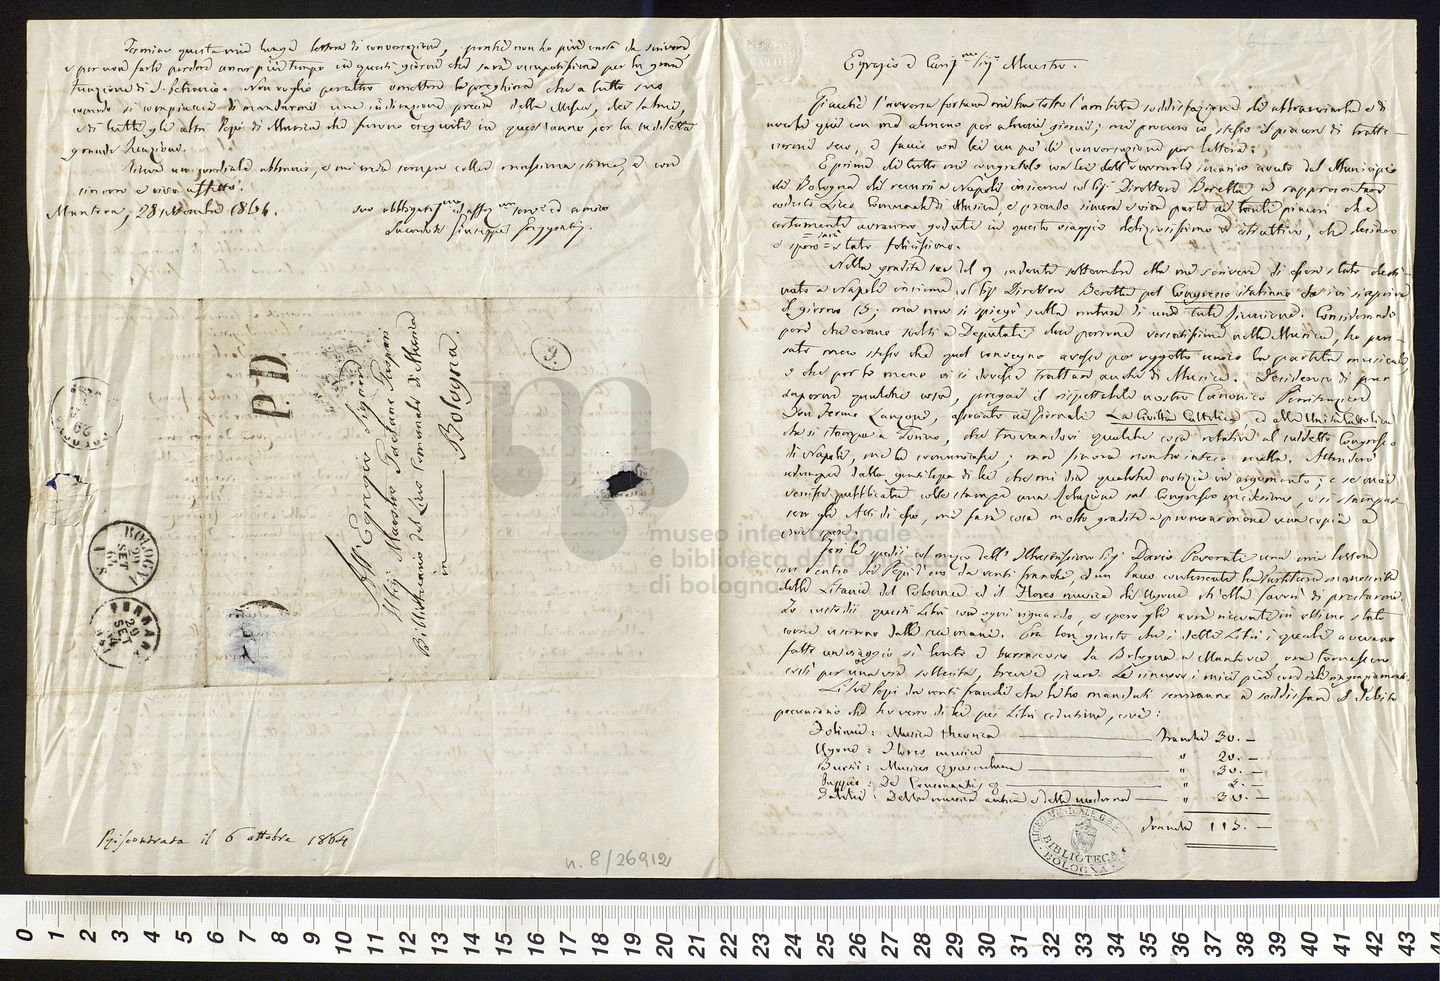 Egregio e Cariss.mo Sig.r Maestro.
Giacchè l'avversa fortuna mi ha tolto l'ambita soddisfazione di abbracciarla e di
averla qui con me almeno per alcuni giorni; mi procuro io stesso il piacere di tratte-
nermi seco, e faccio con lei un po' di conversazione per lettera.
E prima di tutto mi congratulo con lei dell'onorevole incarico avuto dal Municipio
di Bologna di recarsi a Napoli insieme col Sig. Direttore Beretta a rappresentare
codesto Liceo Comunale di Musica, e prendo sincera e viva parte ai tanti piaceri che
certamente avranno goduti in questo viaggio deliziosissimo e istruttivo, che desidero
e spero = sarà = stato felicissimo.
Nella gradita sua del 9 cadente settembre ella mi scriveva di essere stato desti-
nato a Napoli insieme col Sig. Direttore Beretta pel Congresso italiano da ivi si aprire
il giorno 15; ma non si spiegò sulla natura di una tale riunione. Considerando
però che erano scelti a Deputati due persone versatissime nella Musica, ho pen-
sato meco stesso che quel convegno avesse per oggetto unico la partita musicale,
o che per lo meno vi si dovesse trattare anche di Musica. Desideroso di pur
saperne qualche cosa, pregai il rispettabile nostro Canonico Penitenziere
Don Fermo Lanzoni, associato ai giornali La Civiltà Cattolica, ed alla Unità Cattolica
che si stampa a Torino, che trovandovi qualche cosa relativa al suddetto Congresso
di Napoli, me la comunicasse; ma finora non ho inteso nulla. Attenderò
adunque dalla gentilezza di lei che mi dia qualche notizia in argomento; e se mai
venisse pubblicata colle stampe una Relazione sul Congresso medesimo, o si stampas-
sero gli Atti di esso, mi farà cosa molto gradita a procurarmene una copia a
mie spese.
Jeri le spedii col mezzo dell'Illustrissimo Sig. Dario Paverali una mia lettera
con entro sei Pezzi d'oro da venti franchi, ed un Pacco contenente la Partitura manoscritta
delle Litanie del Colonna ed il Flores musicae di Ugone ch'ella favorì di prestarmi.
Io custodii questi Libri con ogni riguardo, e spero gli avrà ricevuti in ottimo stato
come uscirono dalle sue mani. Era ben giusto che i detti Libri i quali avevano
fatto un viaggio sì lento e burrascoso da Bologna a Mantova, ora tornassero
costì per una via sollecita, breve e sicura. Le rinnovo i miei più cordiali ringraziamenti.
I sei Pezzi da venti franchi che le ho mandati serviranno a soddisfare il debito
pecuniario che ho verso di lei pei Libri cedutimi, cioè:
Foliani: Musica theorica — franchi 30. —
Ugone: Flores musicae — " 20. —
Burzi: Musices — " 30. —
De Consonanti — " 3. —
Galilei: Della musica antica e della moderna — " 30. —
franchi 113. —
LICEO MUSICALE
BIBLIOTECA
BOLOGNA
Termino questa mia lunga lettera di conversazione, perchè non ho più carta da scrivere,
e per non farle perdere ancor più tempo in questi giorni che sarà occupatissimo per la gran
funzione di S. Petronio. Non voglio peraltro omettere la preghiera che a tutto suo
comodo si compiaccia di mandarmi una indicazione precisa della Messa, dei salmi,
e di tutti gli altri Pezzi di Musica che furono eseguiti in quest'anno per la suddetta
grande Funzione.
un cordiale abbraccio, e mi creda sempre colla massima stima, e con
sincero e vivo affetto.
Mantova, 28 settembre 1864.
suo obbligatis.mo ed affez.mo serv.e ed amico
Sacerdote Giuseppe Greggiati.
P. D.
All'Egregio Signore
Il Sig. Maestro Gaetano Gaspari
Bibliotecario del Liceo Comunale di Musica
in Bologna.
BOLOGNA
29
SET
64
FERRARA
29
SET
64
Riscontrata il 6 ottobre 1864
n. 8/26912
museo internazionale
e biblioteca della musica
di bologna
0 1 2 3 4 5 6 7 8 9 10 11 12 13 14 15 16 17 18 19 20 21 22 23 24 25 26 27 28 29 30 31 32 33 34 35 36 37 38 39 40 41 42 43 44